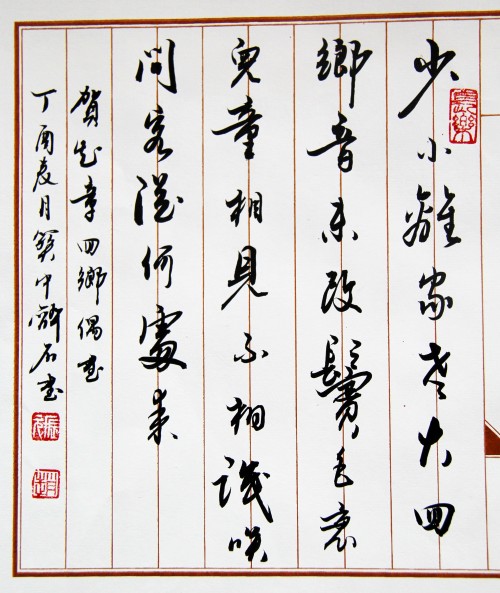 少小離家老大回
鄉音未改鬢毛衰
兒童相見不相識咲
問客從何處來
賀知章回鄉偶書
丁酉夏月中石書